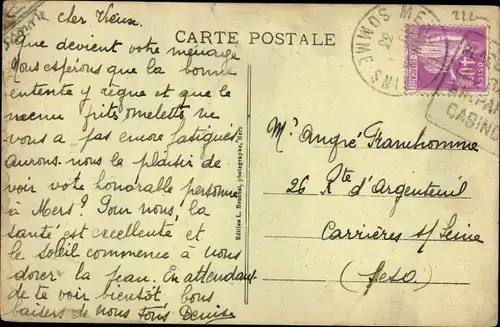 Somme
cher Vieux.
que devient votre ménage
Nous espérons que la bonne
entente y règne et que le
menu frits omelettes ne
vous a pas encore fatigués
Aurons-nous le plaisir de
voir votre honorable personne
à Mers? Pour nous, la
santé est excellente et
le soleil commence à nous
dorer la peau. En attendant
de te voir bientôt, bons
baisers de nous tous Denise
CARTE POSTALE
Edition L. Bouthat, photographe, Mers
SOMME
22
40c
POSTES
CASINO
Mr André Franchomme
26 Rte d'Argenteuil
Carrières s/ Seine
(S&O.)